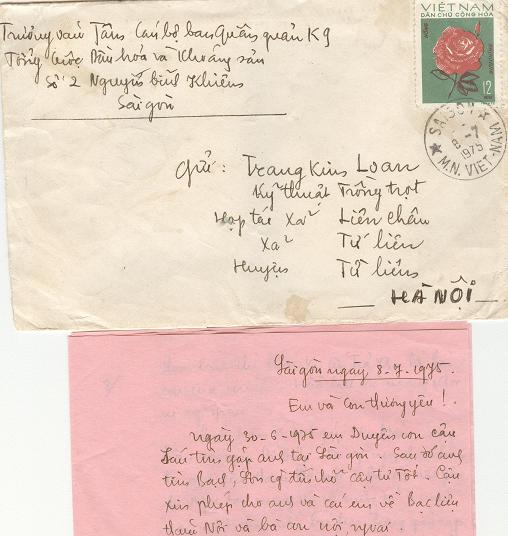 Trương văn Tâm Cán bộ ban Quân quản K9
Tổng cục Dầu hóa và Khoáng sản
Số 2 Nguyễn bỉnh Khiêm
Sài gòn
VIỆT NAM
DÂN CHỦ CỘNG HÒA
12
SAIGON
8-7
1975
M.N. VIET-NAM
Gửi: Trang Kim Loan
Kỹ thuật Trồng trọt
Hợp tác Xã Liên Châu
Xã Tứ liên
Huyện Từ liêm
HÀ NỘI
Sài gòn ngày 8-7-1975.
Em và Con thương yêu!
Ngày 30-6-1975 em Duyên con cậu
Sáu tìm gặp anh tại Sài gòn. Sau đó anh
tìm Bạch, Sơn có tìm chỗ cậu tư Tốt. Cậu
xin phép cho anh và các em về Bạc liêu
thăm Nội và bà con nội, ngoại.